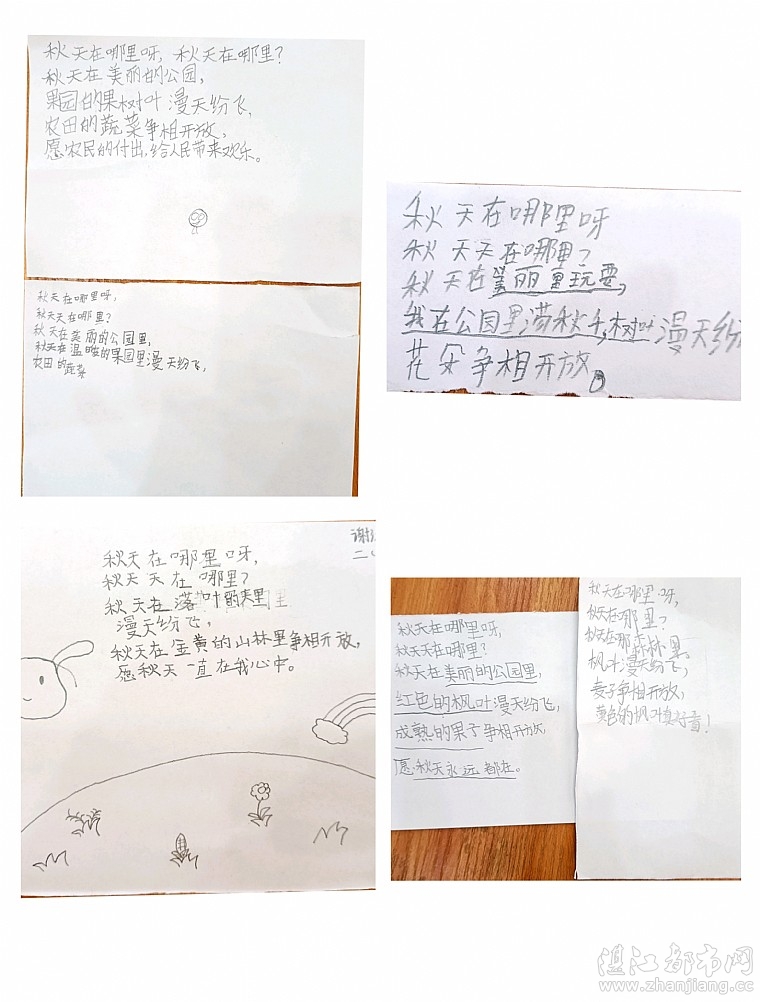 秋天在哪里呀，秋天在哪里？
秋天在美丽的公园，
果园的果树叶漫天纷飞，
农田的蔬菜争相开放，
愿农民的付出，给人民带来欢乐。
秋天在哪里呀，
秋天天在哪里？
秋天在美丽的公园里，
秋天在温暖的果园里漫天纷飞，
农田的蔬菜
秋天在哪里呀
秋天天在哪里？
秋天在美丽里玩耍，
我在公园里荡秋千，树叶漫天纷
花朵争相开放。
谢
二
秋天在哪里呀，
秋天天在哪里？
秋天在落叶的里
漫天纷飞，
秋天在金黄的山林里争相开放，
愿秋天一直在我心中。
秋天在哪里呀，
秋天天在哪里？
秋天在美丽的公园里，
红色的枫叶漫天纷飞，
成熟的果子争相开放，
愿秋天永远都在。
秋天在哪里呀，
秋天在那里？
秋天在那森林里。
枫叶漫天纷飞，
麦子争相开放，
黄色的枫叶真好看！
湛江都市网
www.zhanjiang.cc